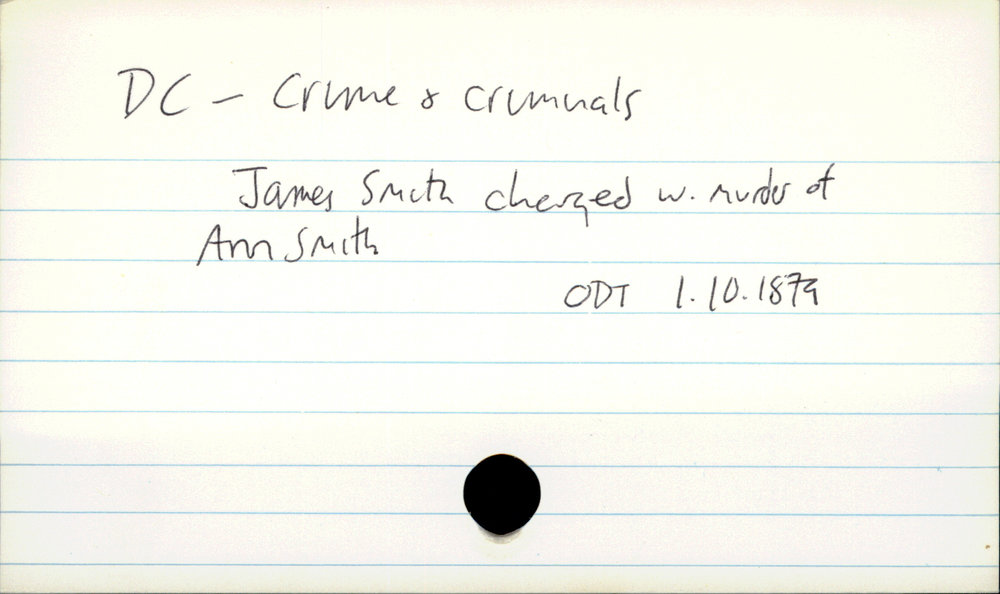 DC - Crime & criminals
James Smith charged w. murder of
Ann Smith
ODT 1.10.1879